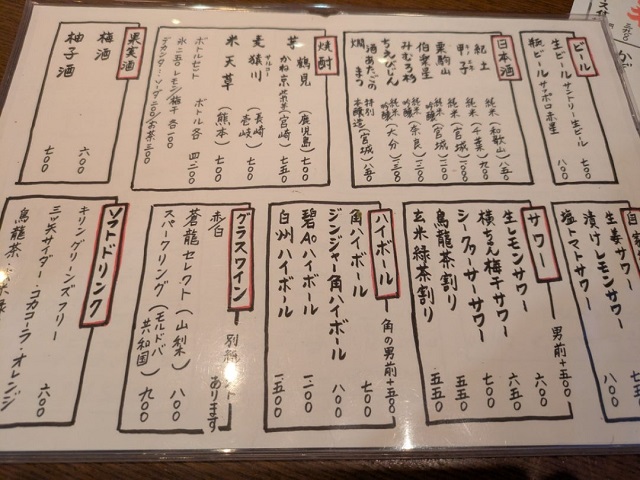 ビール
生ビール サントリー生ビール 七〇〇
瓶ビール サッポロ赤星 八〇〇
日本酒
紀土 純米(和歌山)八五〇
甲子 純米(千葉)九〇〇
栗駒山 純米(宮城)
伯楽星 純米吟醸(宮城)
みむろ杉 純米吟醸(奈良)
ちえびじん 純米吟醸(大分)
酒 あたごのまつ 特別本醸造(宮城)八五〇
焼酎
芋 鶴見(鹿児島)七〇〇
かね京 (宮崎)七五〇
麦 猿川(長崎壱岐)七〇〇
米 天草(熊本)七〇〇
ボトルセット ボトル各 四二〇〇
氷 二五〇 レモン/梅干 各一〇〇
デカンタ ソーダ二〇〇/お茶三〇〇
果実酒
梅酒 六〇〇
柚子酒 七〇〇
塩トマトサワー
漬けレモンサワー 八〇〇
サワー 男前+五〇〇
生レモンサワー 六〇〇
横ちょん梅干サワー 六五〇
シークヮーサーサワー 七〇〇
烏龍茶割り 五五〇
玄米緑茶割り 五五〇
ハイボール 角の男前+五〇〇
角ハイボール 七〇〇
ジンジャー角ハイボール 八〇〇
碧Aoハイボール 一二〇〇
白州ハイボール 一五〇〇
グラスワイン 別紙 あります
赤/白
蒼龍セレクト(山梨) 八〇〇
スパークリング(モルドバ共和国) 九〇〇
ソフトドリンク
キリングリーンズフリー 六〇〇
三ツ矢サイダー・コカコーラ・オレンジ
烏龍茶・